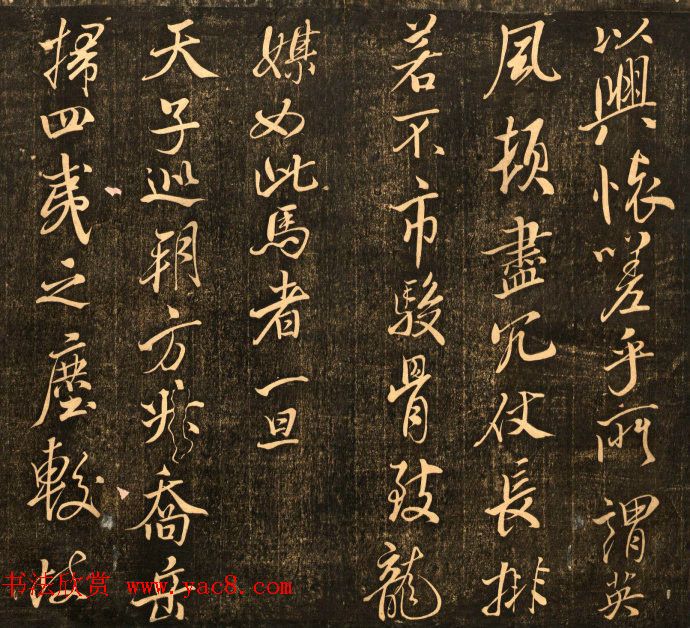 以興懷嗟乎所謂英
風頓盡冗仗長排
若不市駿骨致龍
媒如此馬者一旦
天子巡朔方喬岳
掃四夷之塵較岐
书法欣赏 www.yac8.com